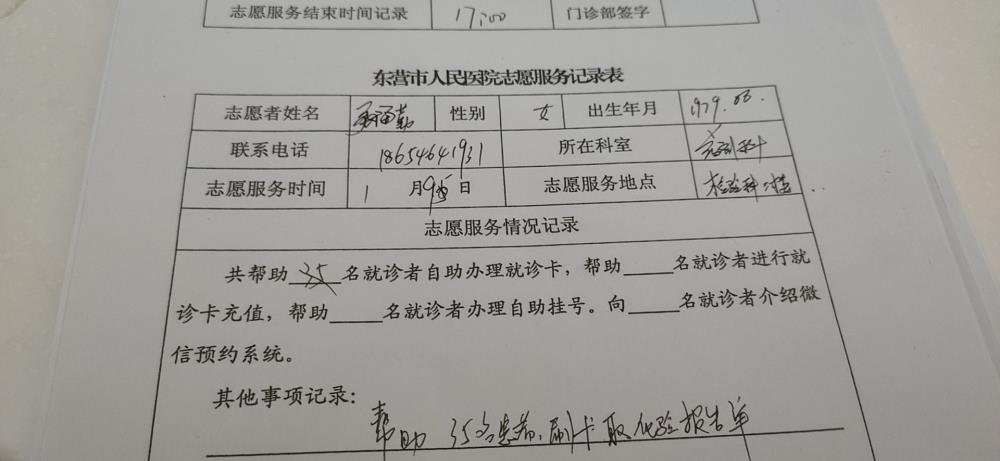 志愿服务结束时间记录 17:00 门诊部签字
东营市人民医院志愿服务记录表
志愿者姓名 性别 女 出生年月 1979.03.
联系电话 18654641931 所在科室 科
志愿服务时间 1 月 9 日 志愿服务地点 检验科
志愿服务情况记录
共帮助35名就诊者自助办理就诊卡，帮助_____名就诊者进行就
诊卡充值，帮助_____名就诊者办理自助挂号。向_____名就诊者介绍微
信预约系统。
其他事项记录：
帮助 35名患者、刷卡取化验报告单